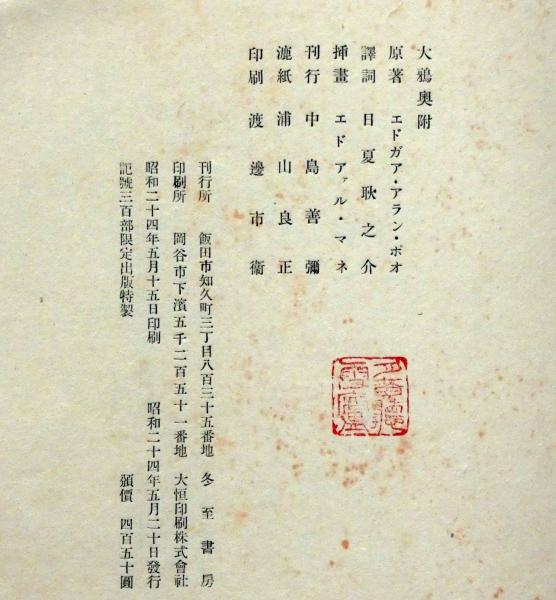 大鴉奧附
原著 エドガア・アラン・ポオ
譯詞 日夏耿之介
挿畫 エドアァル・マネ
刊行 中島善彌
漉紙 浦山良正
印刷 渡邊市衞
刊行所 飯田市知久町三丁目八百三十五番地 冬至書房
印刷所 岡谷市下濱五千二百五十一番地 大恒印刷株式會社
昭和二十四年五月十五日印刷 昭和二十四年五月二十日發行
記號三百部限定出版特製 頒價 四百五十圓